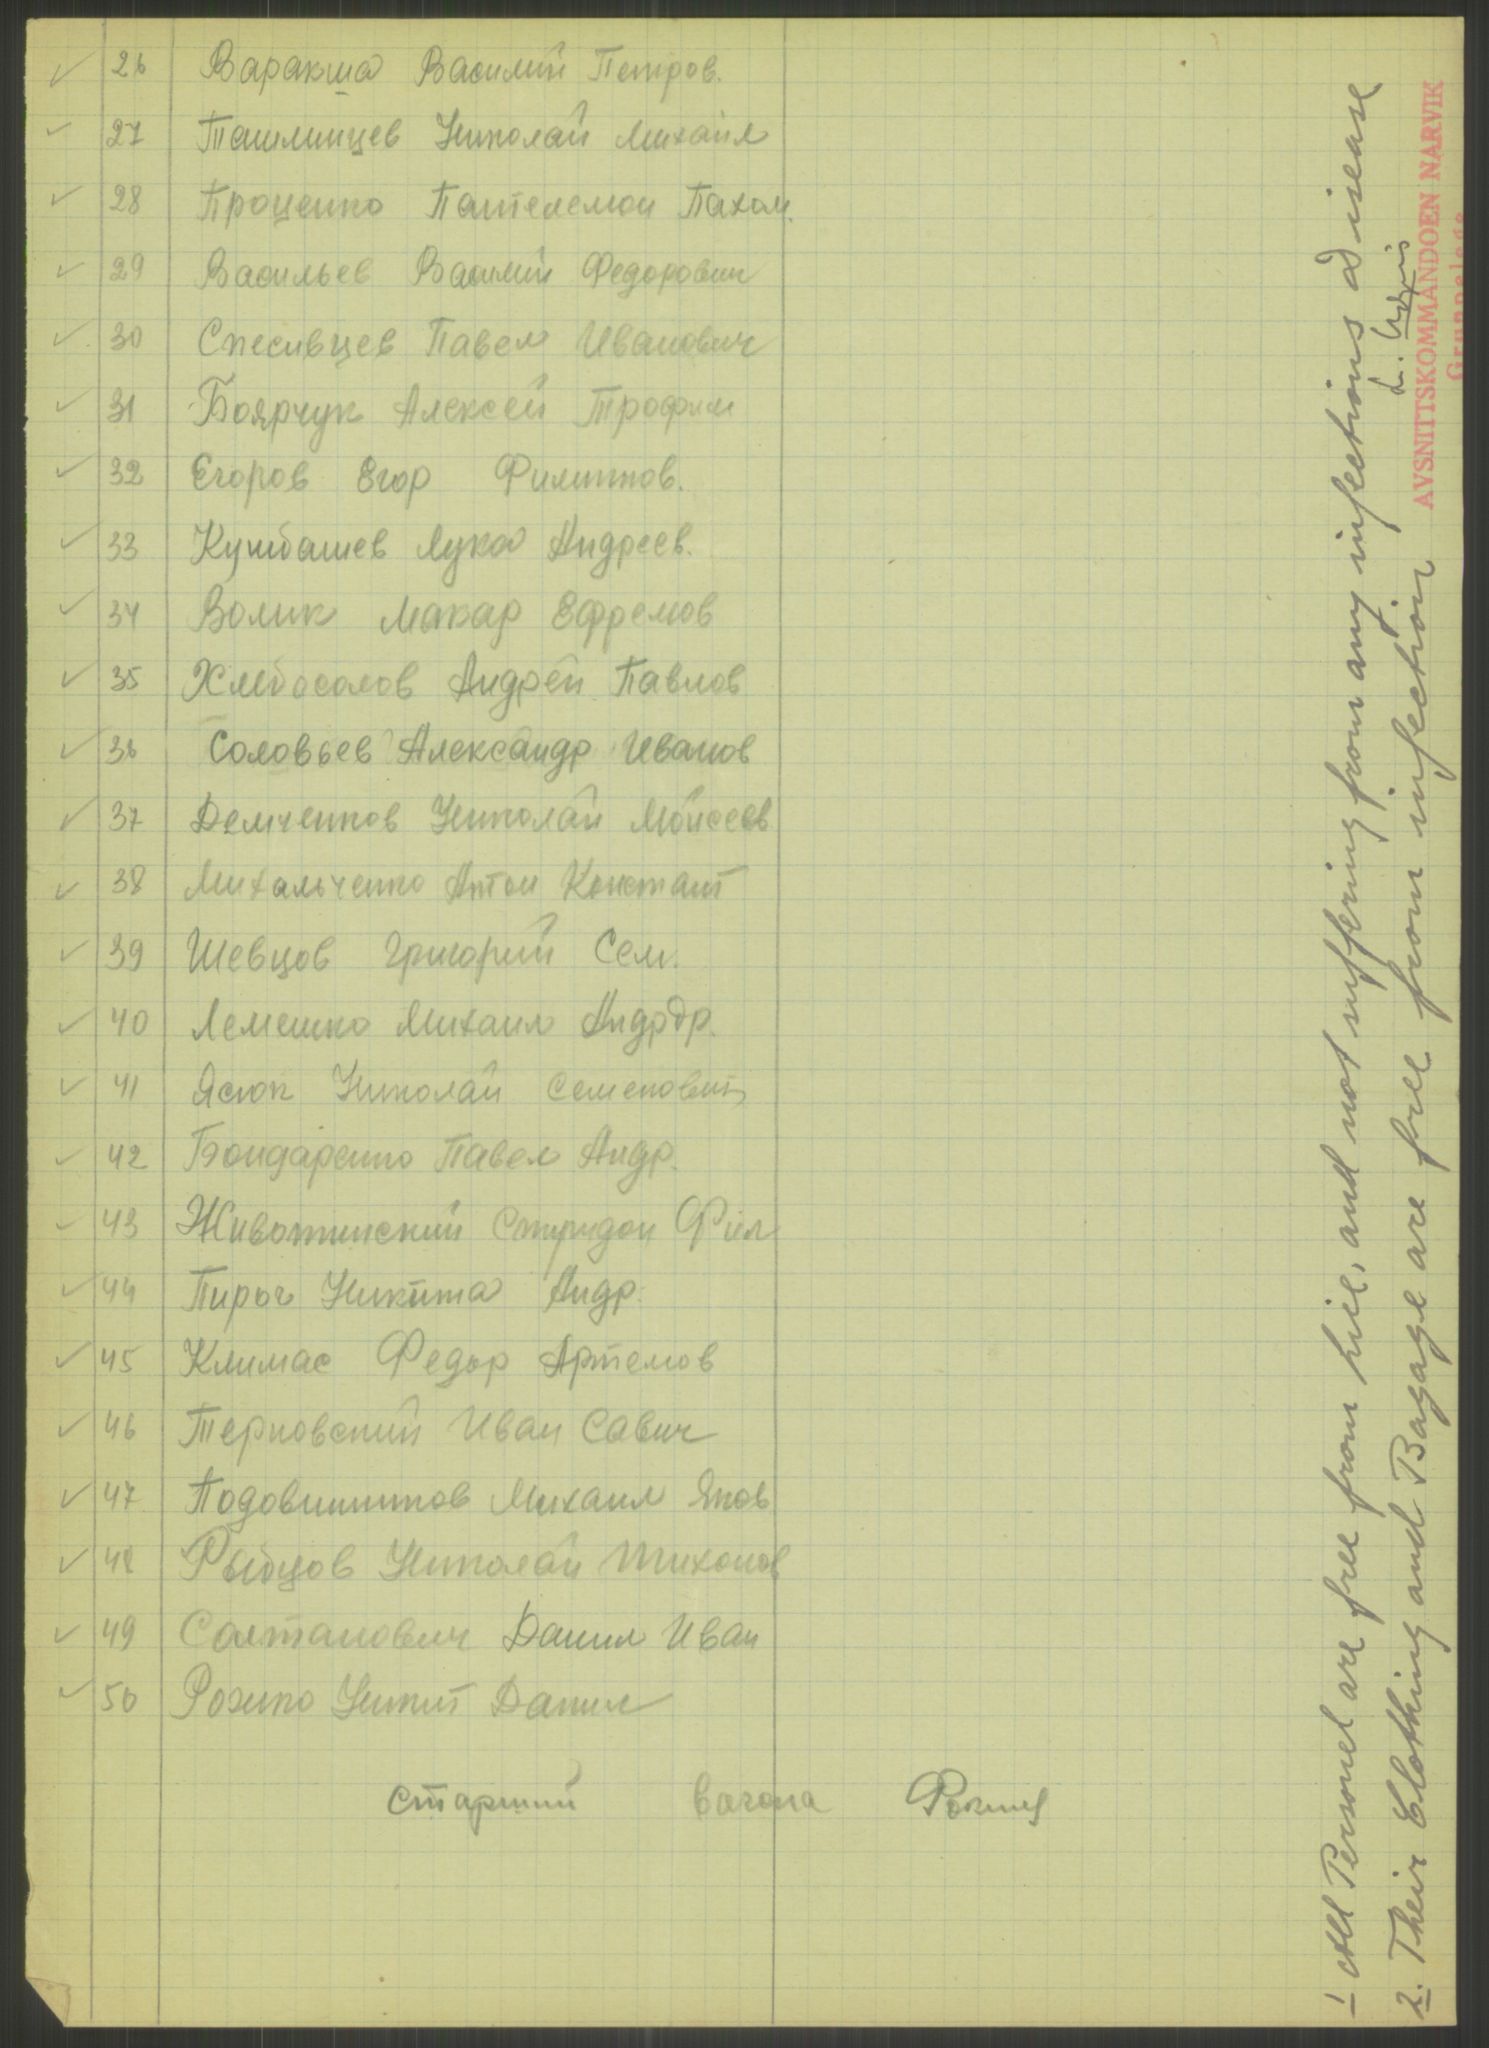 26 Варакша Василий Петров.
27 Ташлинцев Николай Михаил
28 Проценко Пантелемон Пахом.
29 Васильев Василий Федорович
30 Спесивцев Павел Иванович
31 Боярчук Алексей Трофим
32 Егоров Егор Филиппов.
33 Кумбашев Лука Андреев.
34 Волик Макар Ефремов
35 Хлебосолов Андрей Павлов
36 Соловьев Александр Иванов
37 Демченков Николай Мойсеев
38 Михальченко Антон Констант
39 Шевцов Григорий Сем.
40 Лемешко Михаил
41 Ясюк Николай Семенович
42 Бондаренко Павел Андр.
43 Животинский Спиридон Фил
44 Пирог Никита Андр.
45 Климас Федор Артемов
46 Терновский Иван Савич
47 Подовинников Михаил Яков
48 Рыбцов Николай Тихонов
49 Солтанович Данил Иван
50 Рожко Никит Данил
Старший вагона
1 All Personel are free from lice, and not suffering from any infections disease
2. Their Clothing and Bagage are free from infection
AVSNITTSKOMMANDOEN NARVIK